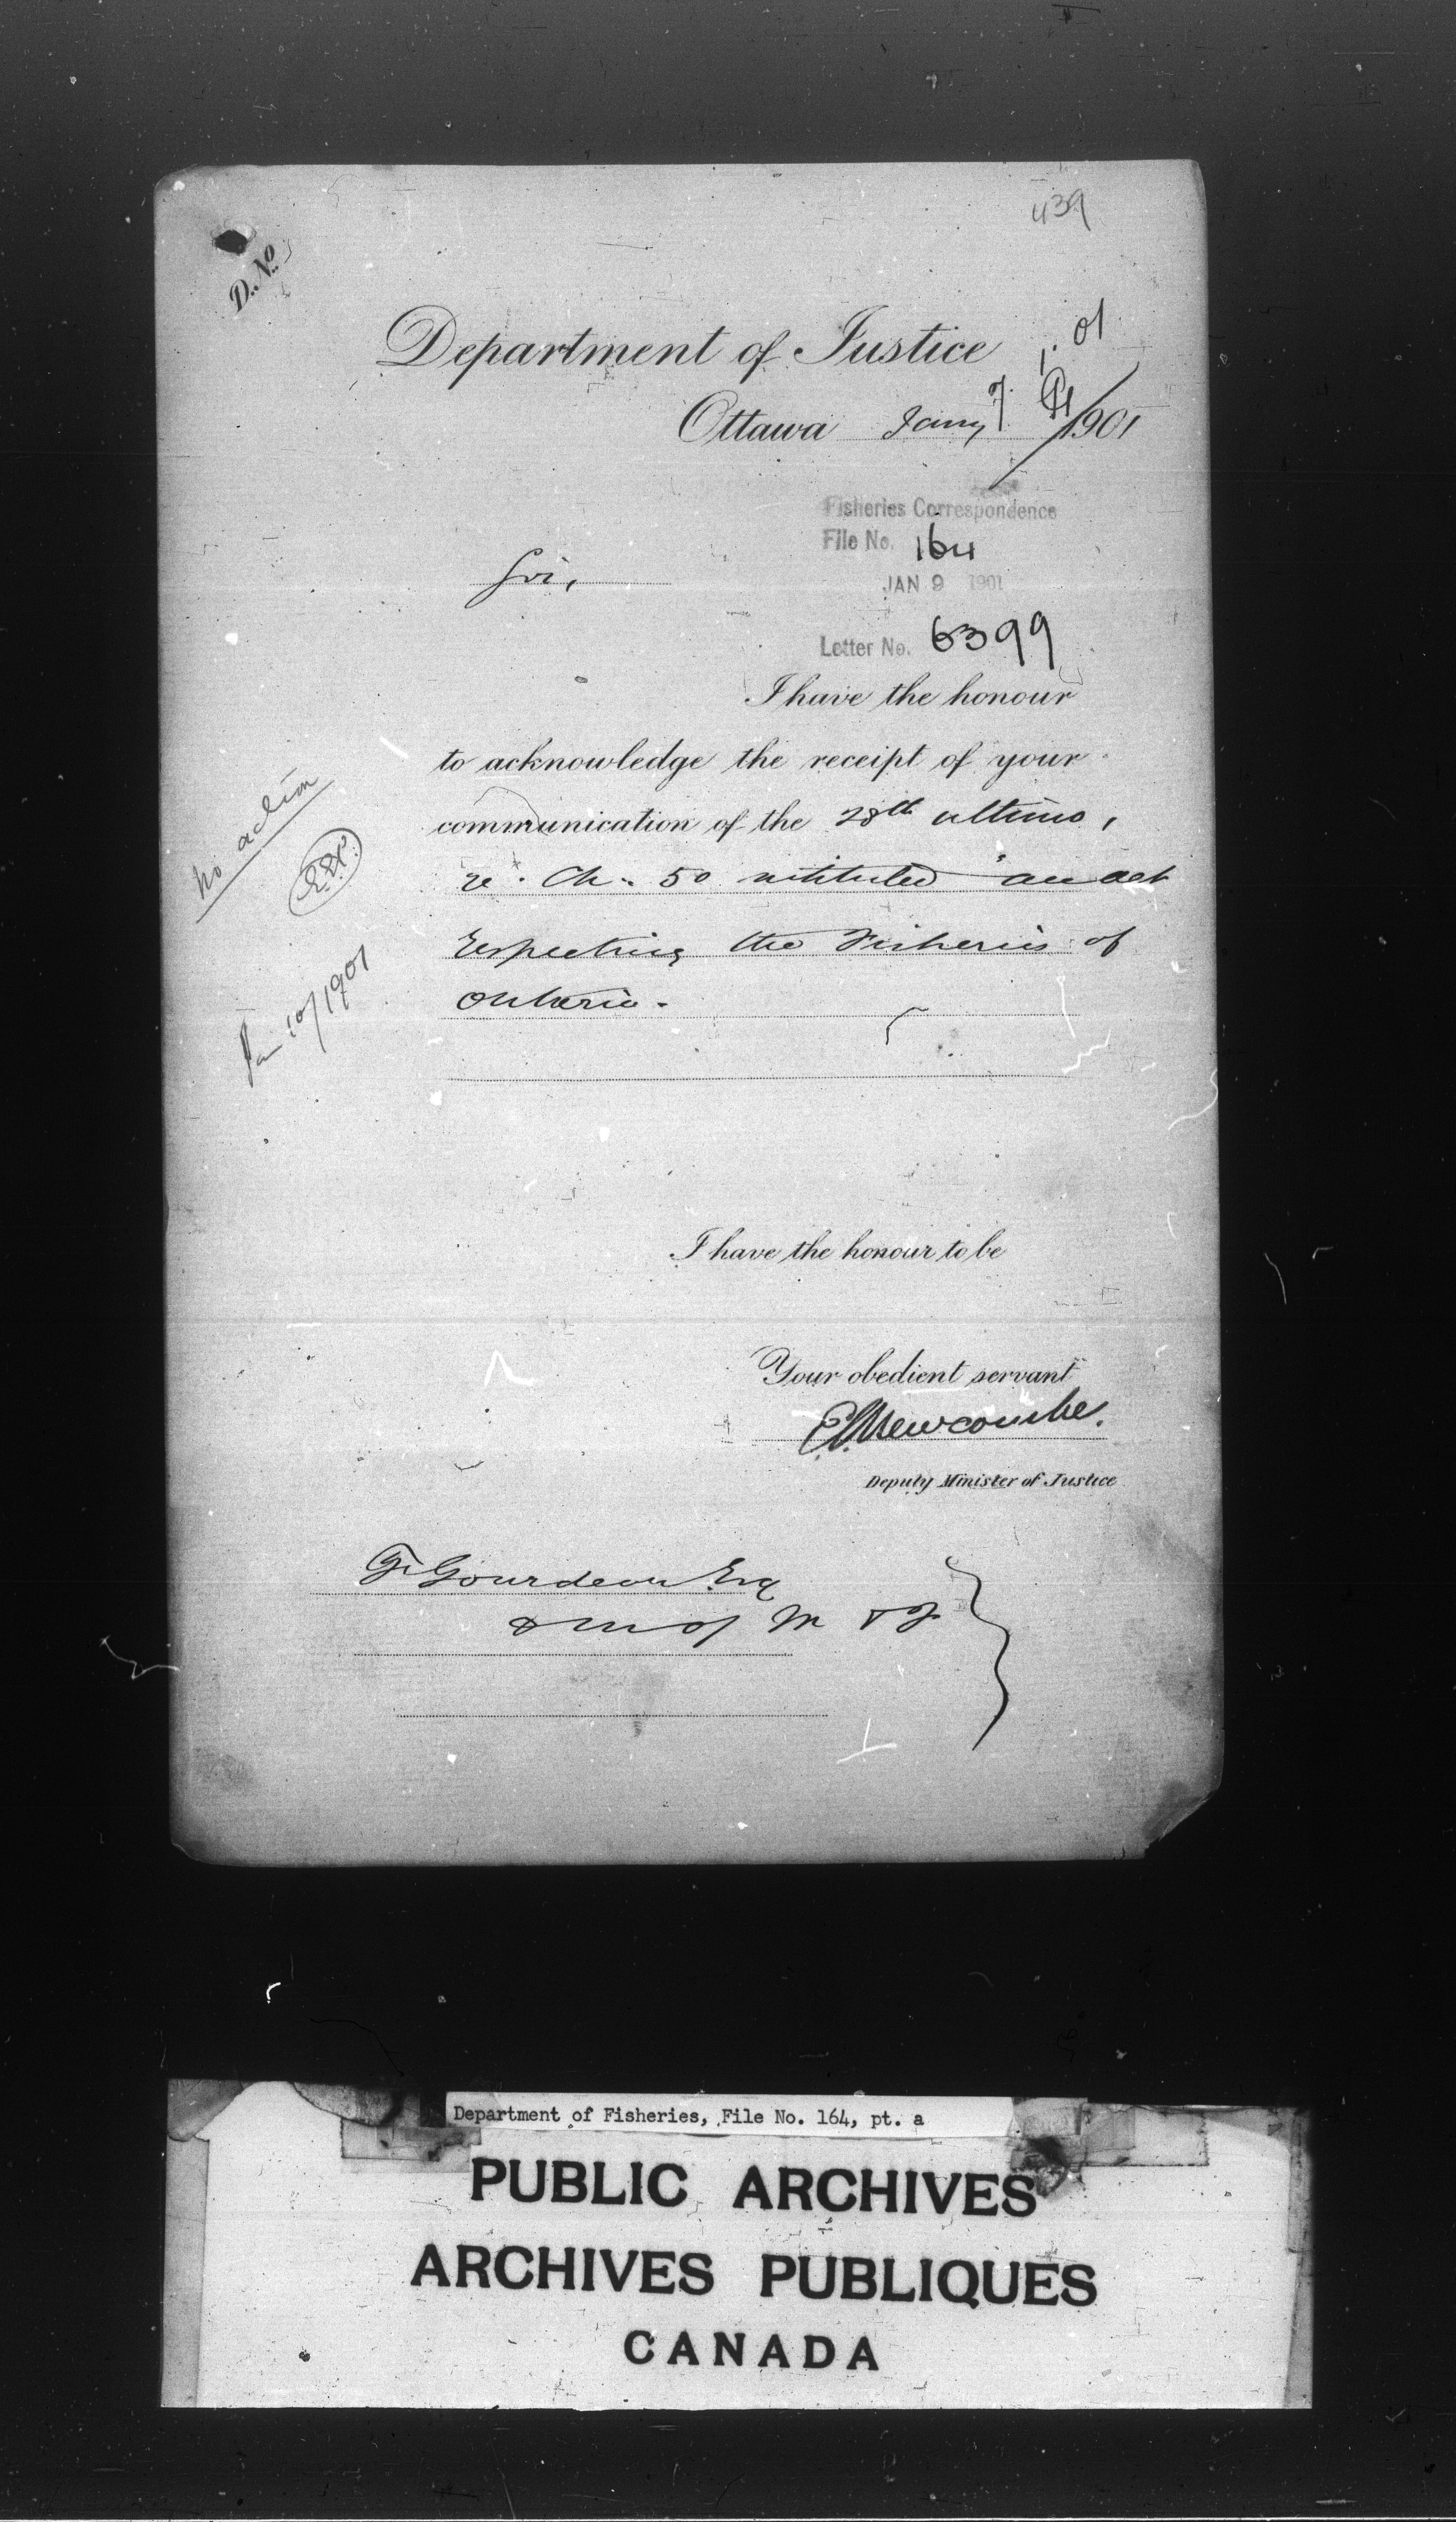 439
D. No.
Department of Justice
1. 01
Ottawa Jany 7. 1901
Fisheries Correspondence
File No. 164
JAN 9 1901
Sir,
Letter No. 6399
I have the honour
to acknowledge the receipt of your
communication of the 28th ultimo,
re. Ch. 50 intituled "an act
respecting the Fisheries of
Ontario.
no action
Jan 10/1901
I have the honour to be
Your obedient servant
E.L. Newcombe.
Deputy Minister of Justice
F. Gourdeau Esq
D M of M & F
Department of Fisheries, File No. 164, pt. a
PUBLIC ARCHIVES
ARCHIVES PUBLIQUES
CANADA